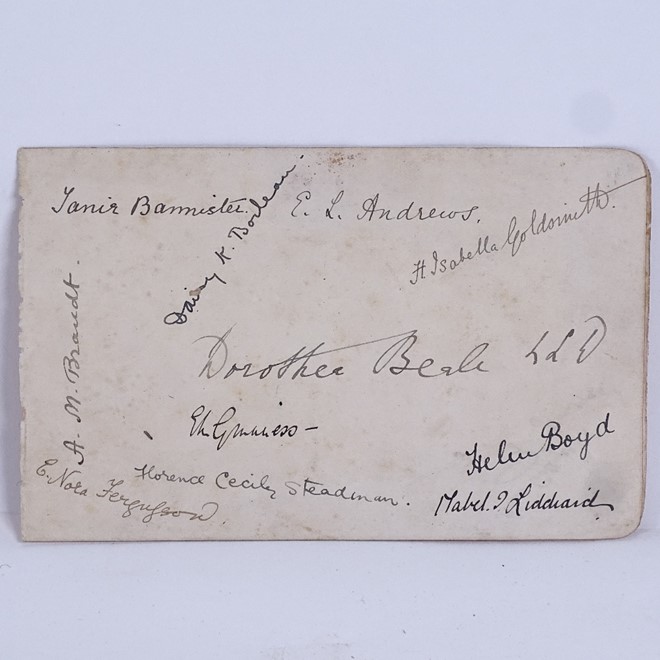 Janie Bannister.
E. L. Andrews.
Daisy K. Boileau.
H Isabella Goldsmith.
A. M. Brandt.
Dorothea Beale LLD
Guinness –
Helen Boyd
Florence Cecily Steadman.
Mabel. I. Liddiard
E. Nora Fergusson.